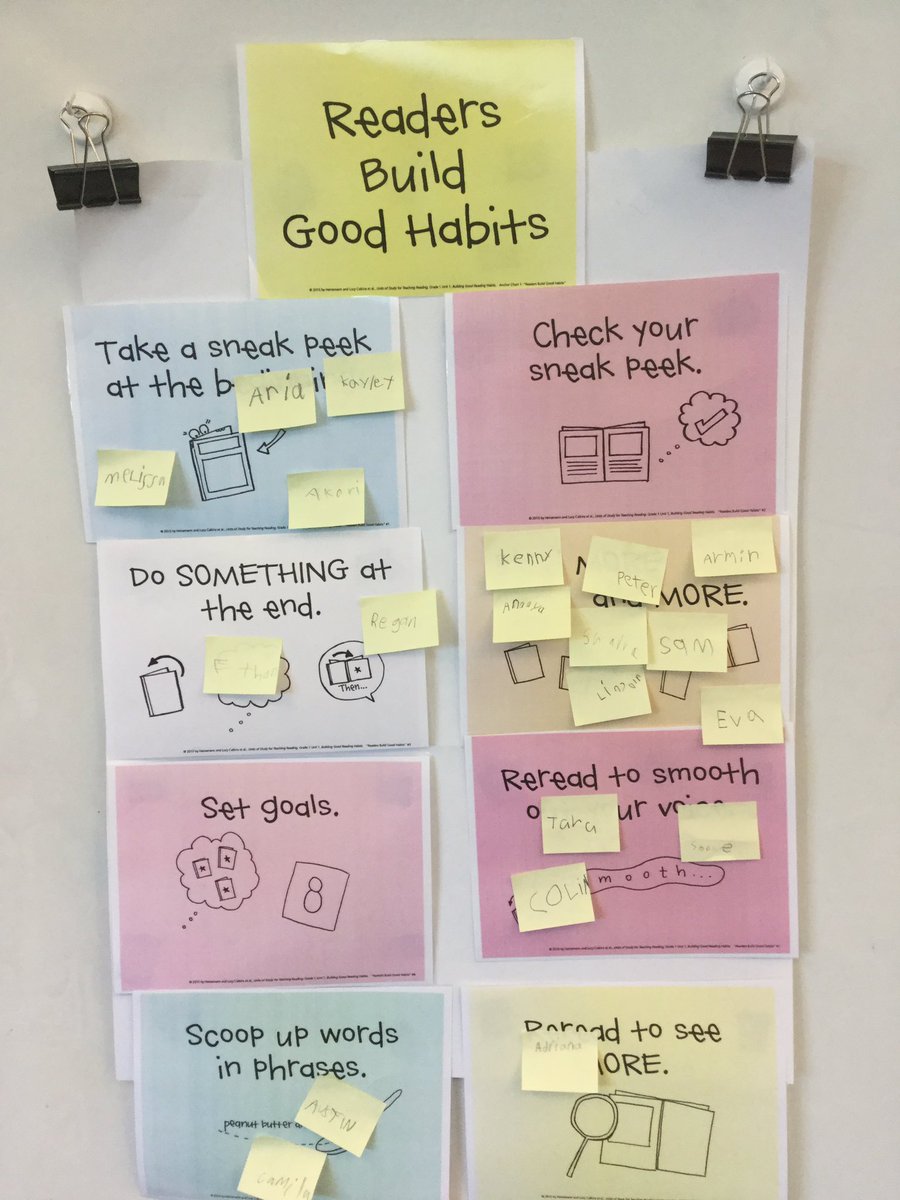 Readers
Build
Good Habits
© 2015 by Heinemann and Lucy Calkins et al., Units of Study for Teaching Reading, Grade 1 Unit 1, Building Good Reading Habits. Anchor Chart 1: "Readers Build Good Habits"
Take a sneak peek
at the
Aria
Kayley
Melissa
Akari
Check your
sneak peek.
Do SOMETHING at
the end.
Regan
Then...
and MORE.
Kenny
Peter
Armin
Amara
Sam
Eva
Set goals.
8
Reread to smooth
Tara
COLIN
mooth...
Scoop up words
in phrases.
peanut butter
ASTIN
Camila
Reread to see
MORE.
Adriana